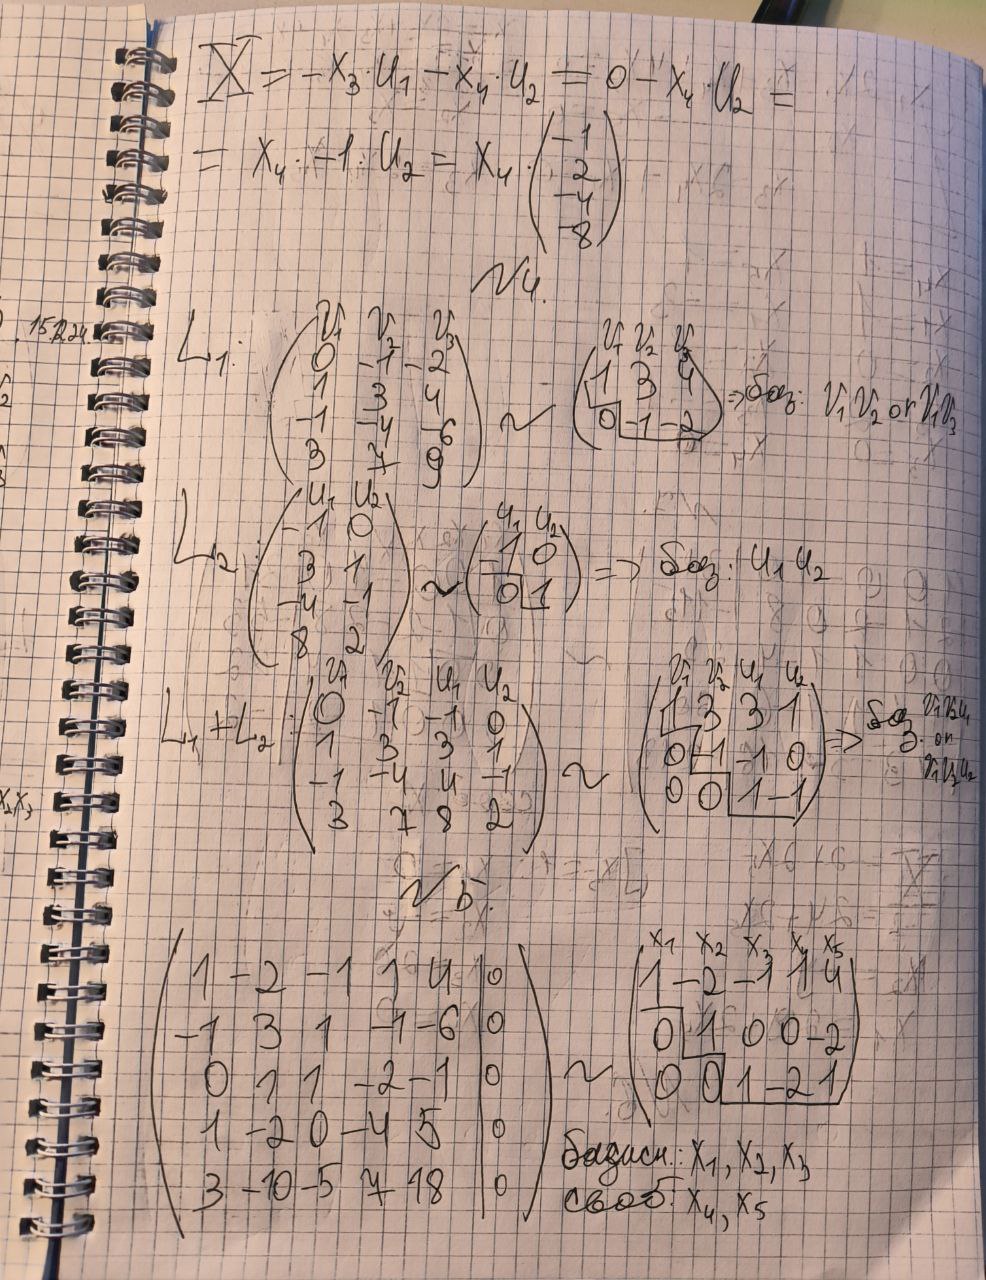 X = -x₃·u₁ - x₄·u₂ = 0 - x₄·u₂ =
= x₄·-1·u₂ = x₄·(-1 2 -4 -8)
N4.
15.12.24
L₁:
v₁ v₂ v₃
0 -1 -2
1 3 4
-1 -4 -6
3 7 9
~
v₁ v₂ v₃
1 3 4
0 -1 -2
=> баз: v₁ v₂ or v₁ v₃
L₂:
u₁ u₂
-1 0
3 1
-4 -1
8 2
~
u₁ u₂
-1 0
0 1
=> баз: u₁ u₂
L₁+L₂:
v₁ v₂ u₁ u₂
0 -1 -1 0
1 3 3 1
-1 -4 4 -1
3 7 8 2
~
v₁ v₂ u₁ u₂
1 3 3 1
0 -1 -1 0
0 0 1 -1
=> баз. v₁ v₂ u₁
or
v₁ v₂ u₂
x₂ x₃
N5.
1 -2 -1 1 4 | 0
-1 3 1 -1 -6 | 0
0 1 1 -2 -1 | 0
1 -2 0 -4 5 | 0
3 -10 -5 7 18 | 0
~
x₁ x₂ x₃ x₄ x₅
1 -2 -1 1 4
0 1 0 0 -2
0 0 1 -2 1
базисн.: x₁, x₂, x₃
своб: x₄, x₅